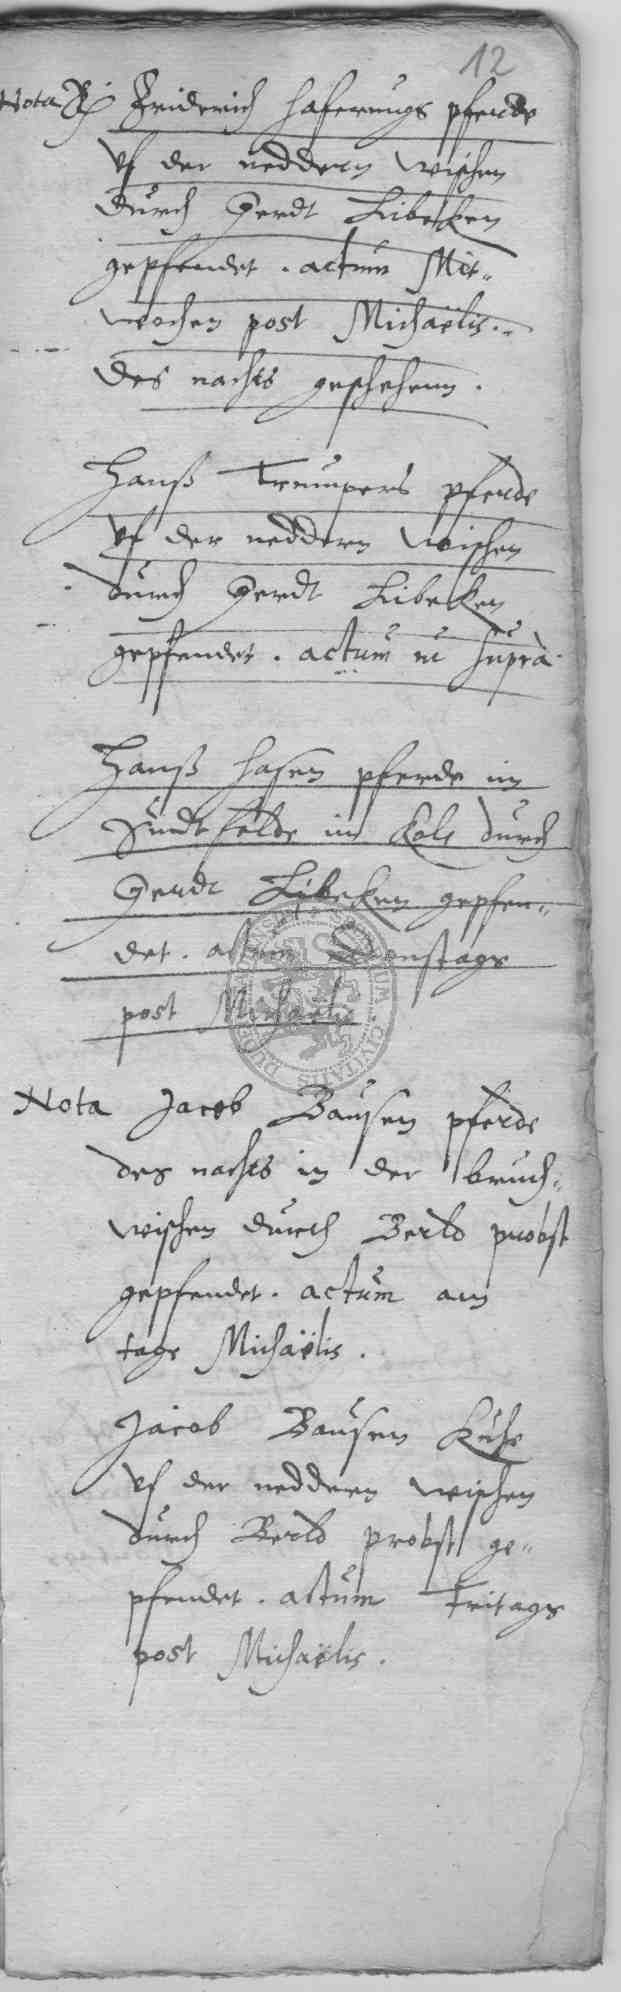 12
Nota Friderich Haferungs pferde
uf der neddern wischen
durch Gerdt Lübeken
gepfendet. actum Mit-
wochen post Michaëlis.
des nachts geschehenn.
Hanß Trumpers pferde
uf der neddern wischen
durch Gerdt Lübeken
gepfendet. actum ut supra
Hanß Hasen pferde im
Sundtfelde im Kole durch
Gerdt Lübeken gepfen-
det. actum Dienstags
post Michaëlis
Nota Jacob Bausen pferde
des nachts in der bruch-
wischen durch Berld probst
gepfendet. actum am
tage Michaëlis.
Jacob Bausen Kuhe
uf der neddern wischen
durch Berld probst ge-
pfendet. actum Fritags
post Michaëlis.